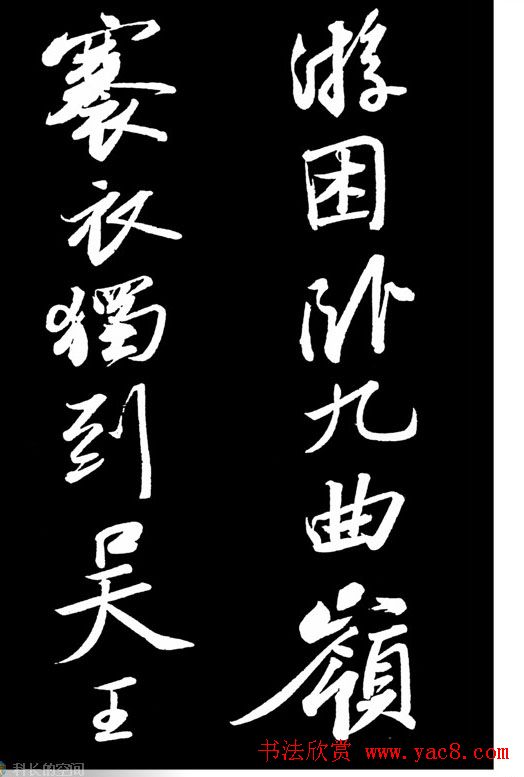 游困卧九曲嶺
褰衣獨到吳王
书法欣赏 www.yac8.com
科长的空间